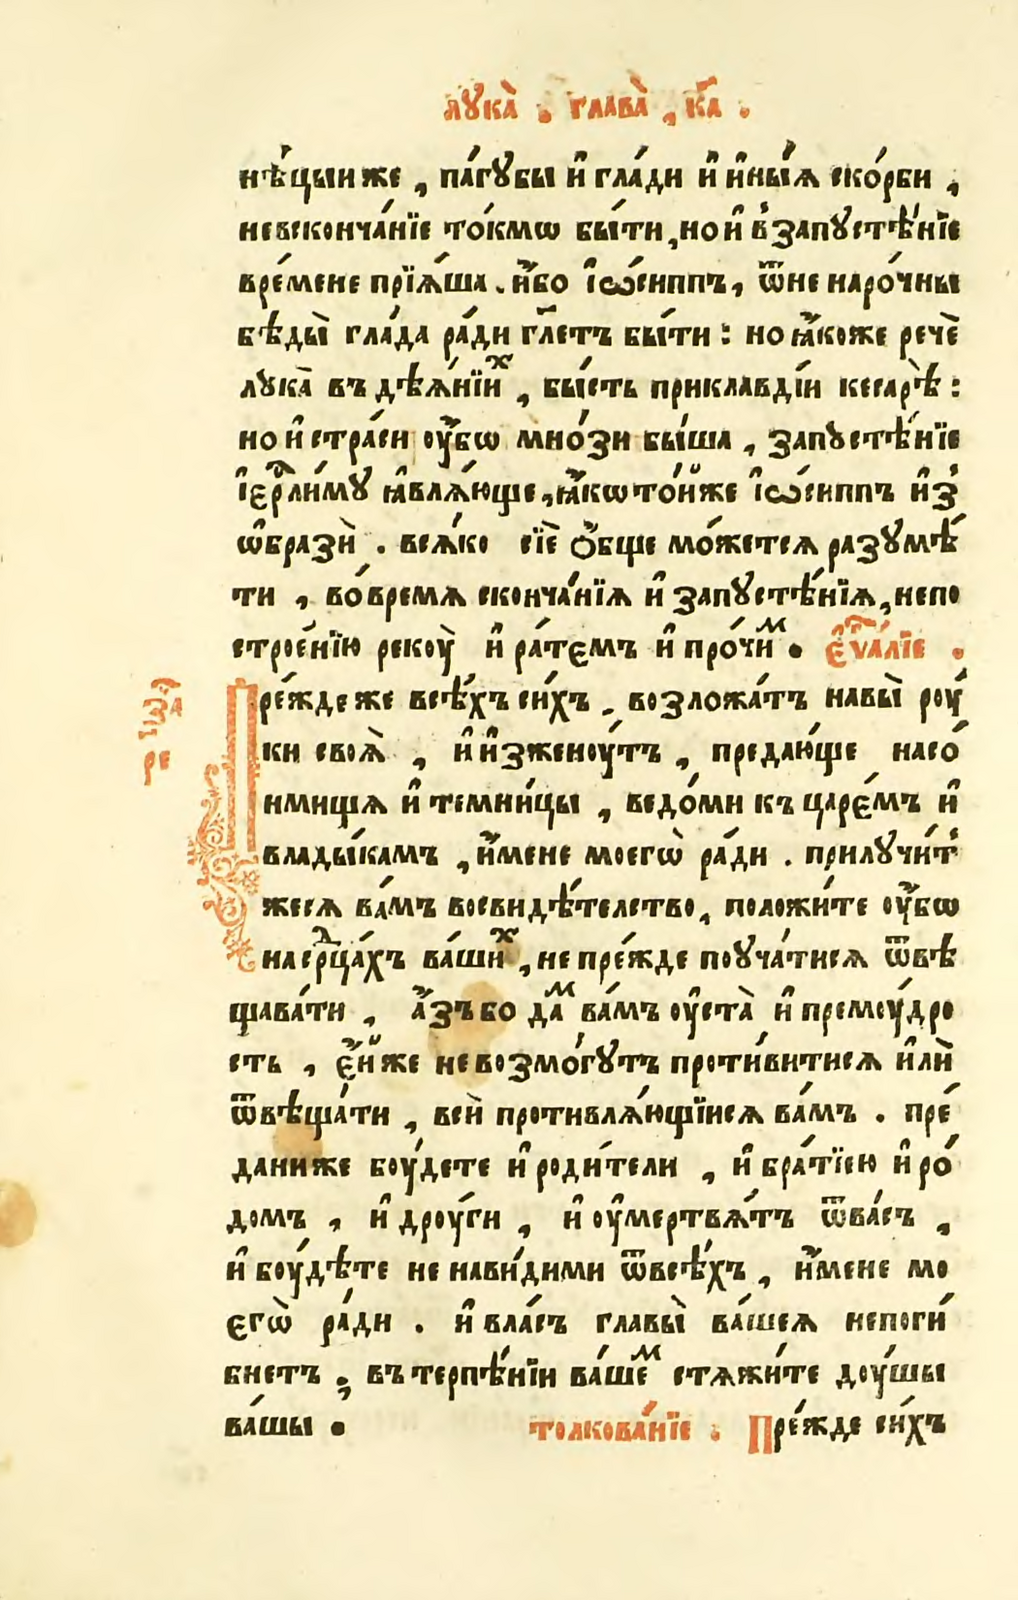 лꙋка̀ . глава̀ , к҃а .
нѣ́цыиже , па́гꙋбы и҆ гла́ди и҆ и҆ны́ѧ ско́рби ,
невсконча́нїе то́кмѡ бы́ти , но и҆ в̾запꙋстѣ́нїе
вре́мене прїѧ́ша . и҆́бо і҆ѡ́сиппъ , ѿне наро́чны
бѣды̀ гла́да ра́ди гл҃етъ бы́ти : но ꙗ҆́коже речѐ
лꙋка̀ въ дѣѧ́нїиⷯ , бы́сть приклавді́и кесарѣ̀ :
но и҆ стра́сти оу҆́бѡ мно́зи бы́ша , запꙋстѣ́нїе
і҆ерⷭ҇ли́мꙋ ꙗ҆влѧ́юще , ꙗ҆́кѡ то́и҆же і҆ѡ́сиппъ и҆з̾
ѡ҆бразѝ . всѧ́ко сїѐ ѻ҆́бще мо́жетсѧ разꙋмѣ́
ти , во́времѧ сконча́нїѧ и҆ запꙋстѣ́нїѧ , непо
строе́нїю рекоу̀ и҆ ра́темъ и҆ про́чиⷨ . є҆ѵⷢ҇а́лїе .
за҃
ре
Пре́ждеже всѣ́хъ си́хъ , возложа́тъ навы̀ роу́
ки своѧ̀ , и҆ и҆зженоу́тъ , предаю́ще насо́
нмищѧ и҆ темни́цы , ведо́ми къ царе́мъ и҆
влады́камъ , и҆́мене моегѡ̀ ра́ди . прилꙋчи́т̾
жесѧ ва́мъ восвидѣ́телство , положи́те оу҆́бѡ
насрⷣца́хъ ва́шиⷯ , не пре́жде поꙋча́тисѧ ѿвѣ
щава́ти , а҆́зъ бо даⷨ ва́мъ оу҆ста̀ и҆ премоу́дро
сть , є҆́йже не возмо́гꙋтъ проти́витисѧ и҆лѝ
ѿвѣща́ти , всѝ противлѧ́ющїисѧ ва́мъ . пре́
даниже боу́дете и҆ роди́тели , и҆ бра́тїею и҆ ро́
домъ , и҆ дроу́ги , и҆ оу҆мертвѧ́тъ ѿва́съ ,
и҆ боу́дѣте не нави́дими ѿвсѣ́хъ , и҆́мене мо
егѡ̀ ра́ди . и҆ вла́съ главы̀ ва́шеѧ непоги́
бнетъ , въ терпѣ́нїи ва́шеⷨ стѧжи́те доу́шы
ва́шы . толкова́нїе . Пре́жде си́хъ